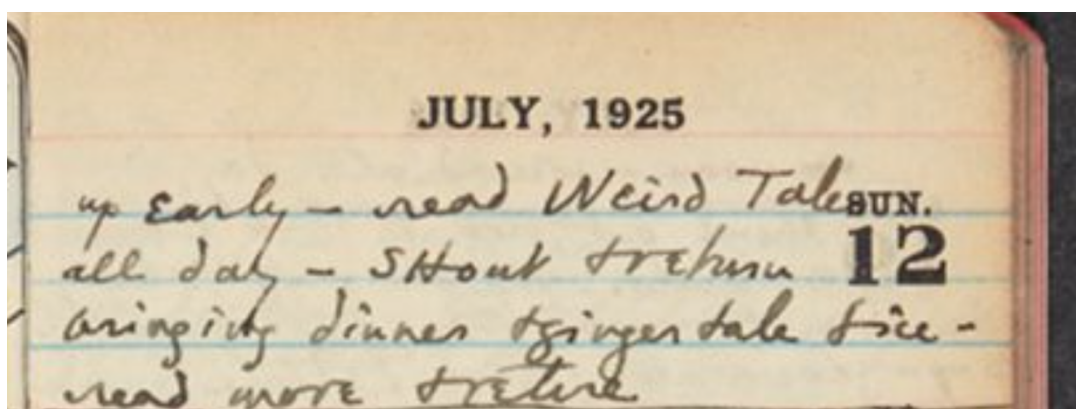 JULY, 1925
up Early – read Weird Tales SUN.
all day – SH out & return 12
bringing dinner & ginger ale & ice –
read more & retire